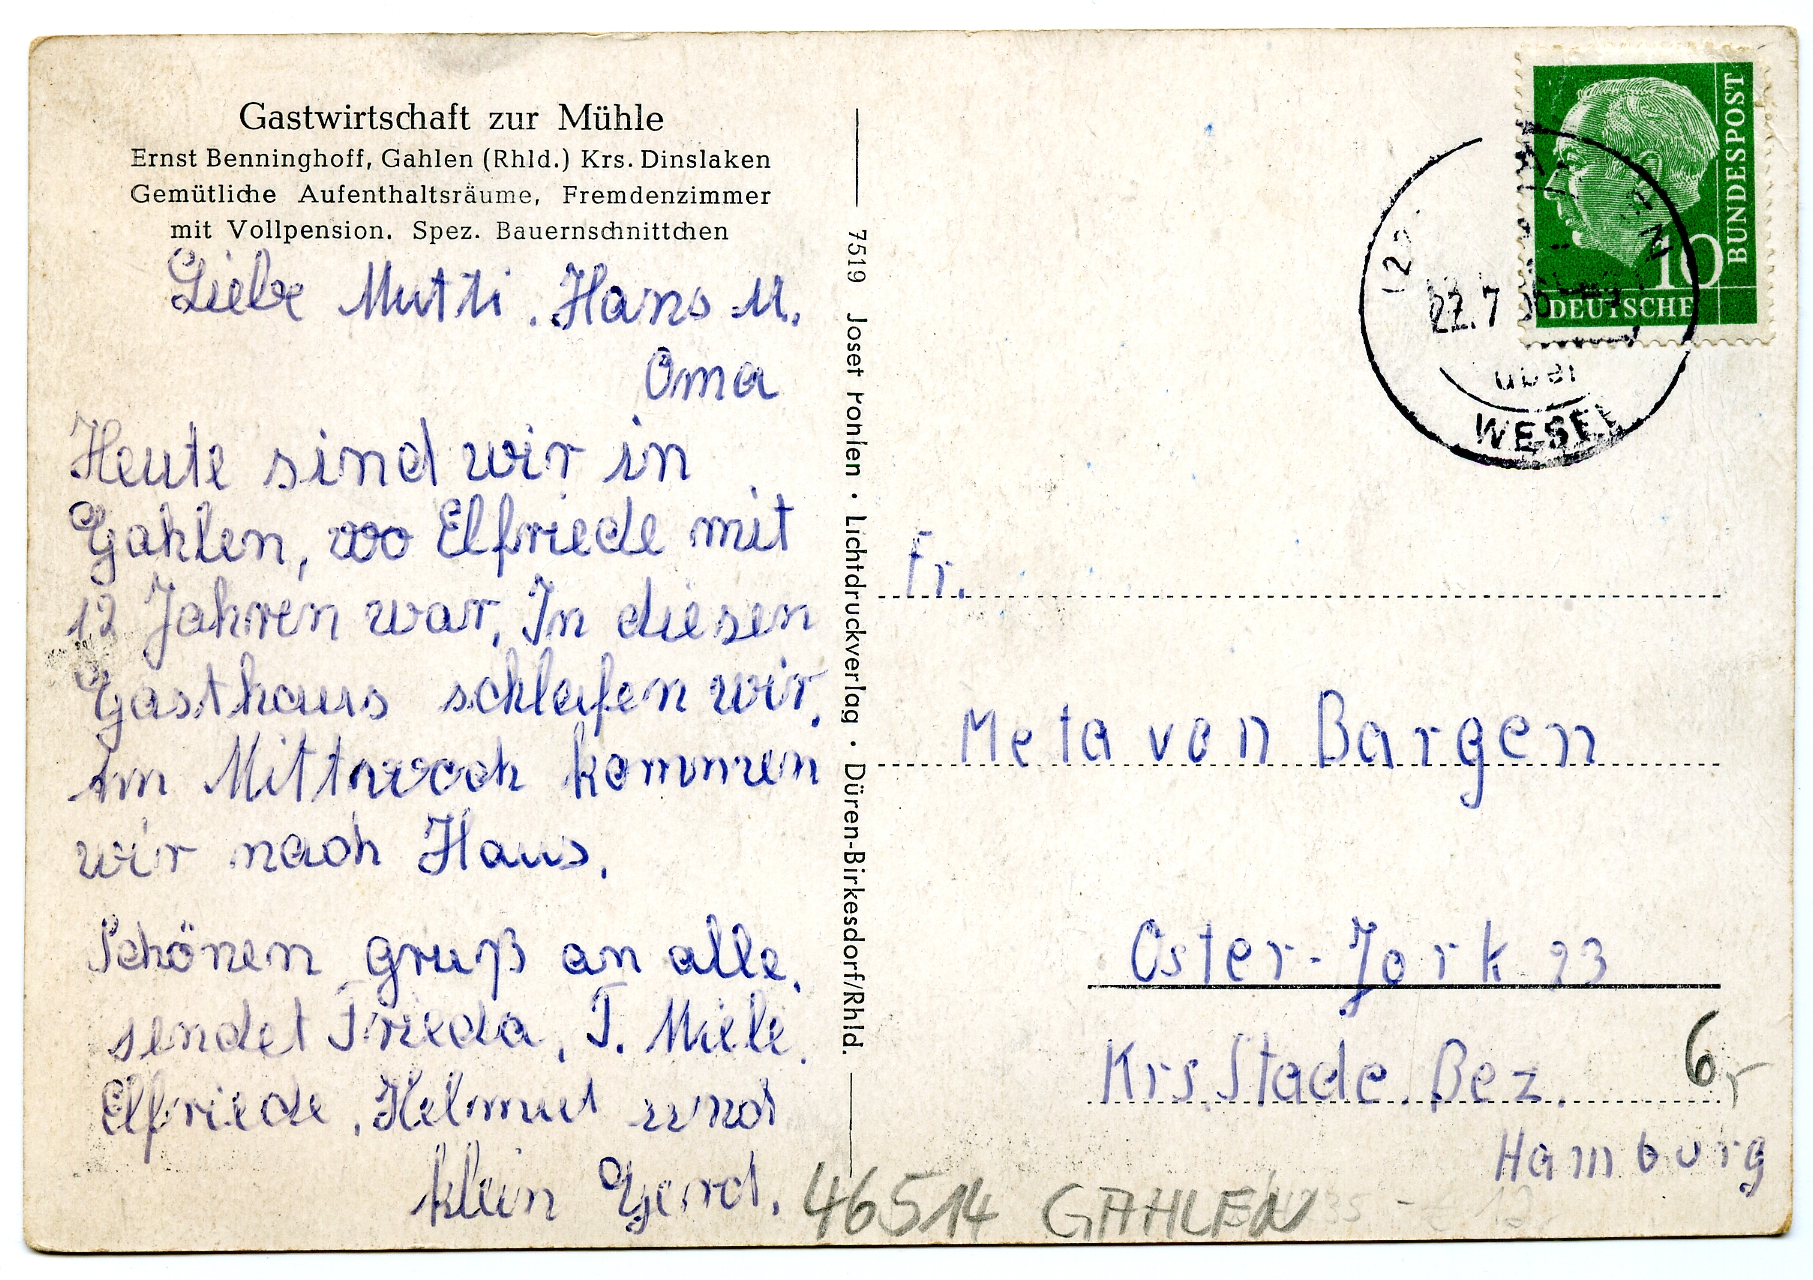 Gastwirtschaft zur Mühle
Ernst Benninghoff, Gahlen (Rhld.) Krs. Dinslaken
Gemütliche Aufenthaltsräume, Fremdenzimmer
mit Vollpension. Spez. Bauernschnittchen
Liebe Mutti. Hans u.
Oma
Heute sind wir in
Gahlen, wo Elfriede mit
12 Jahren war, In diesen
Gasthaus schlafen wir,
Am Mittwoch kommen
wir nach Haus.
Schönen gruß an alle,
sendet Frieda, T. Miele.
Elfriede, Helmut und
klein Gerd.
7519 Josef Ponlen · Lichtdruckverlag · Düren-Birkesdorf/Rhld.
BUNDESPOST
10
DEUTSCHE
22.7
über
WESEL
Fr.
Meta von Bargen
Oster-Jork 23
Krs. Stade. Bez.
Hamburg
6
46514 GAHLEN